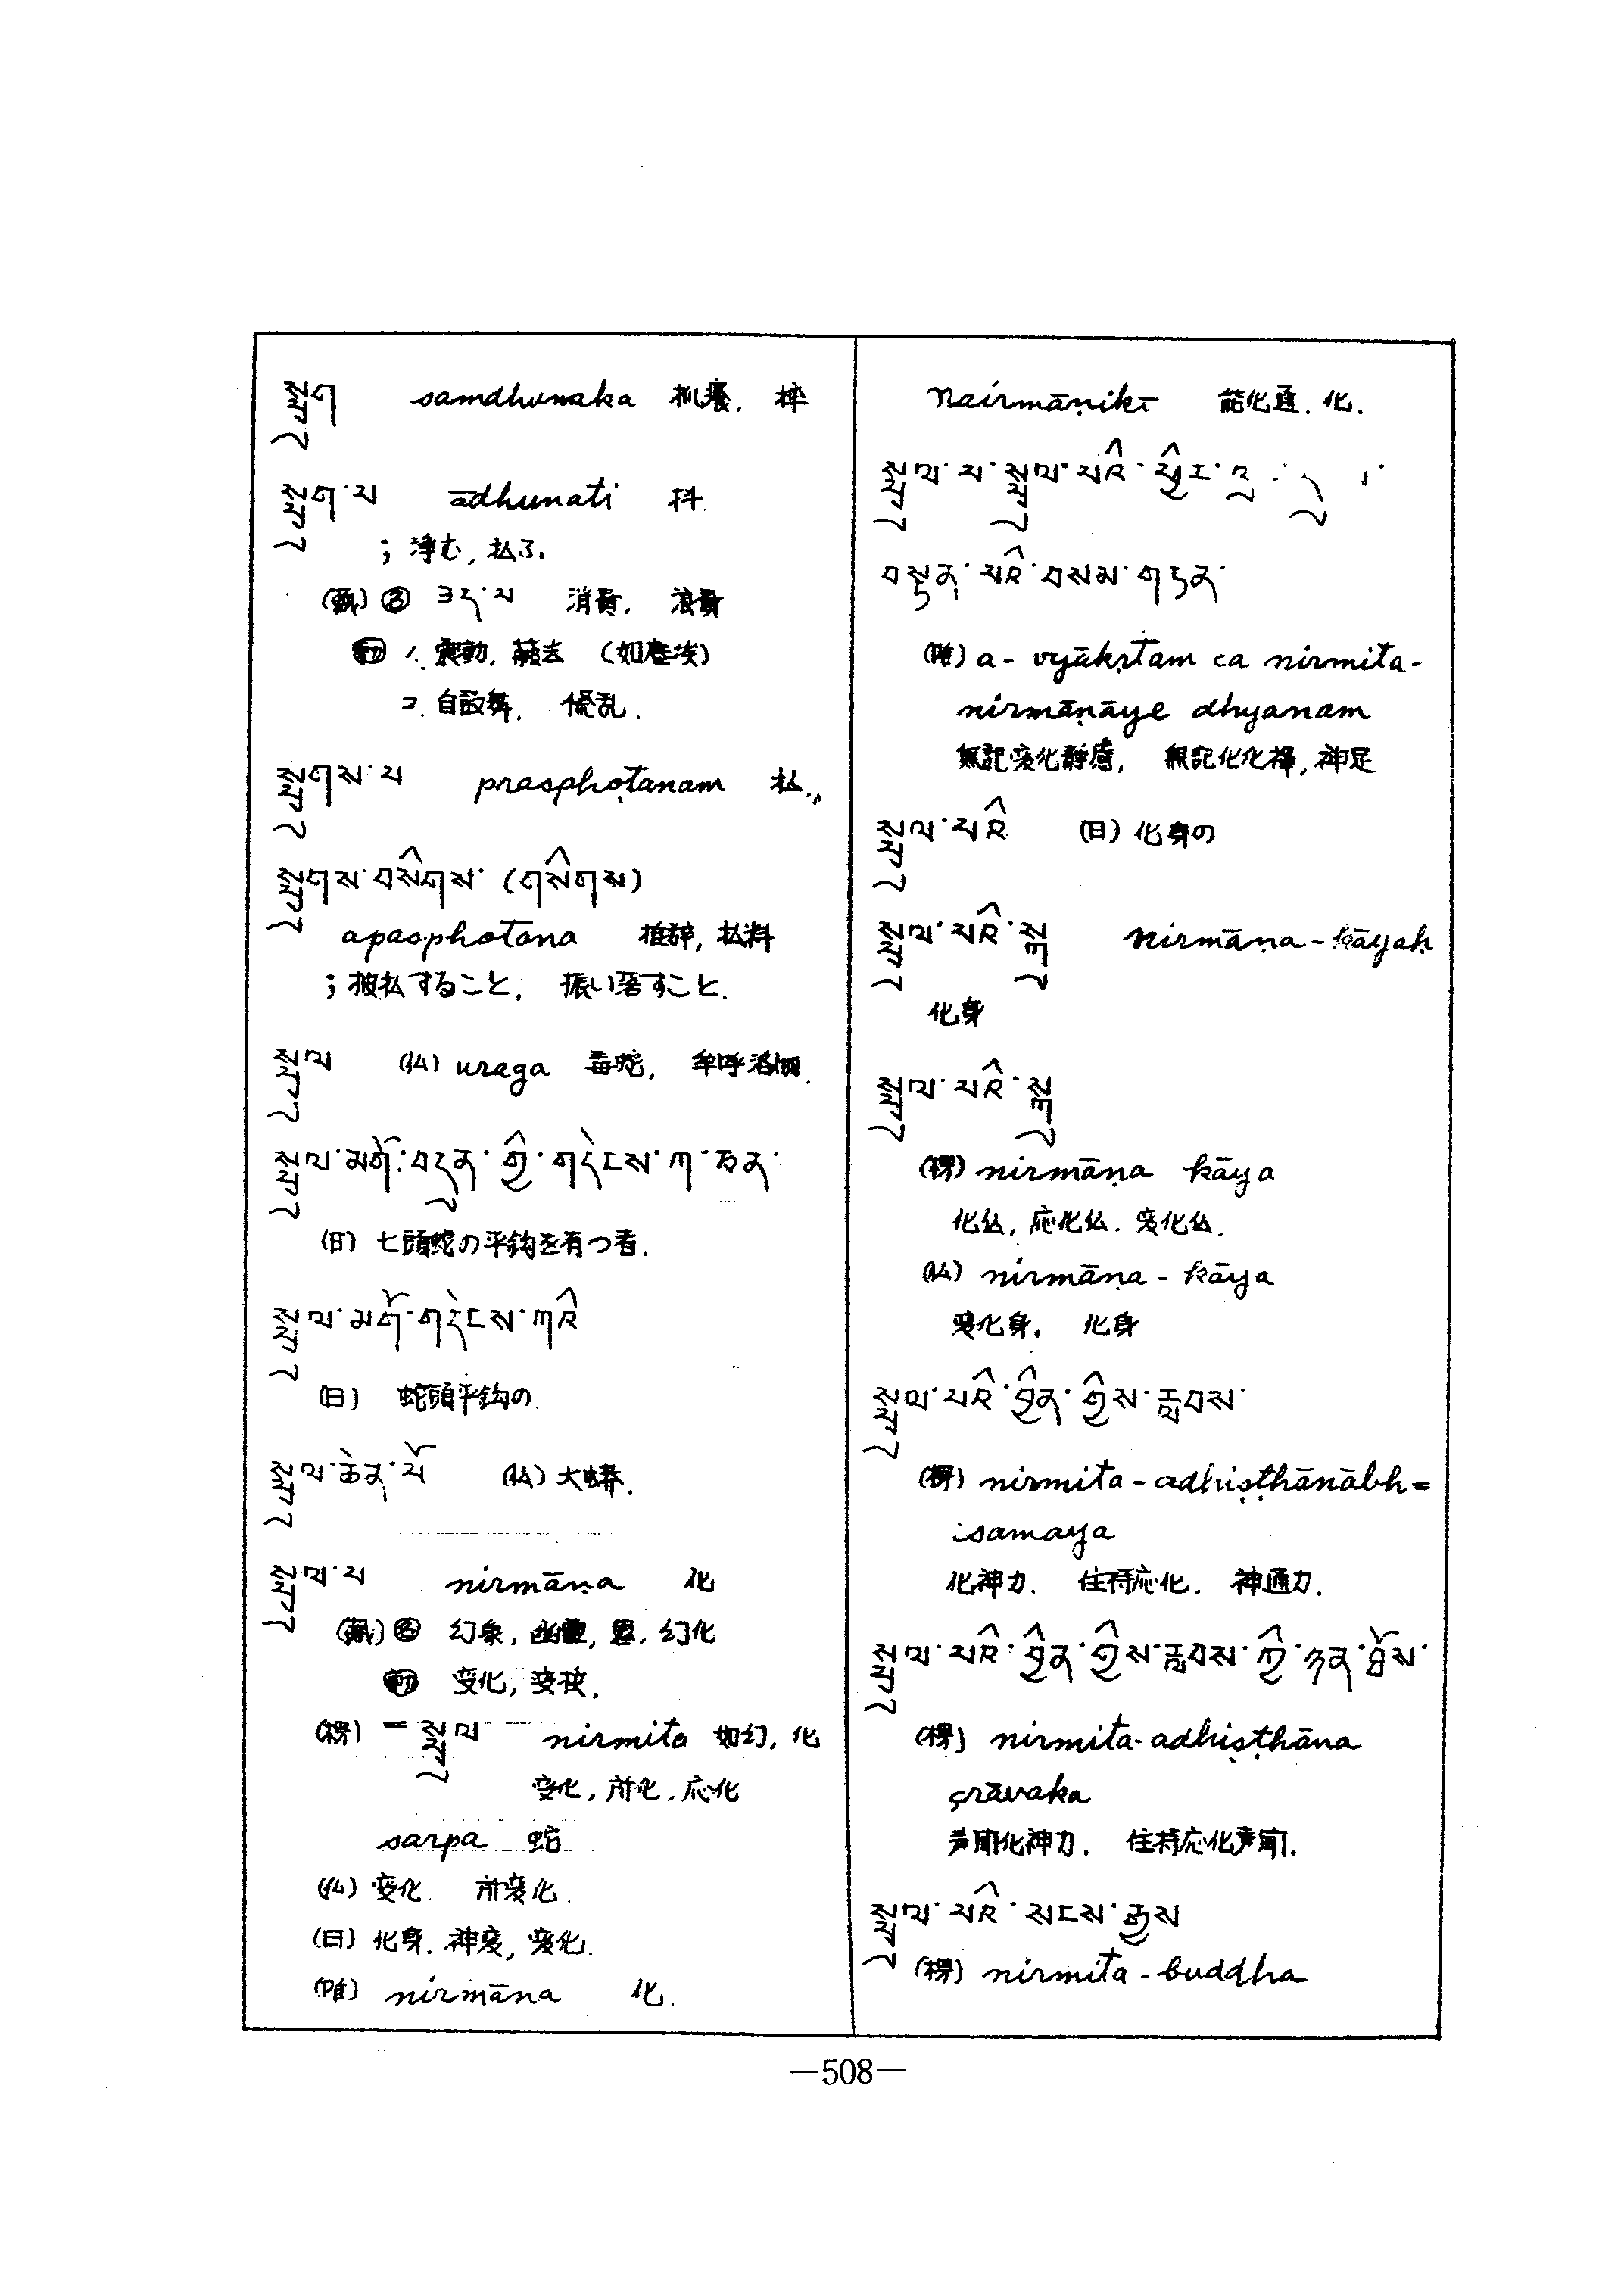 སྤྲུག samdhunaka 抓癢. 捽
སྤྲུག་པ ādhunati 抖.
; 淨む, 払ふ.
(蔵) 名 ཟད་པ 消費. 浪費
動 1. 震動, 蔽去 (如塵埃)
2. 自鼓舞. 優乱.
སྤྲུགས་པ prasphoṭanam 払.,
སྤྲུགས་བསིགས་ (གསིགས)
apasphotana 推辞, 払料
; 披払すること. 振い落すこと.
སྤྲུལ (仏) uraga 毒蛇. 牟呼洛伽.
སྤྲུལ་མགོ་བདུན་གྱི་གདེངས་ཀ་ཅན་
(日) 七頭蛇の平鈎を有つ者.
སྤྲུལ་མགོ་གདེངས་ཀའི
(日) 蛇頭平鈎の.
སྤྲུལ་ཆེན་པོ (仏) 大蟒.
སྤྲུལ་པ nirmāṇa 化
(蔵) 名 幻象, 幽霊, 鬼. 幻化
動 変化, 変被.
(楞) = སྤྲུལ nirmita 如幻, 化
変化, 所化, 応化
sarpa 蛇
(仏) 変化. 所変化.
(日) 化身. 神変, 変化.
(唯) nirmāna 化.
nairmāṇikī 能化通. 化.
སྤྲུལ་པ་སྤྲུལ་པའི་ཕྱིར་
བསྟན་པའི་བསམ་གཏན་
(唯) a-vyākṛtam ca nirmita-
nirmāṇāye dhyanam
無記変化静慮. 無記化化禅, 神足
སྤྲུལ་པའི (日) 化身の
སྤྲུལ་པའི་སྐུ nirmāṇa-kāyaḥ
化身
སྤྲུལ་པའི་སྐུ
(楞) nirmāṇa kāya
化仏, 応化仏. 変化仏.
(仏) nirmāṇa-kāya
変化身. 化身
སྤྲུལ་པའི་བྱིན་གྱིས་རླབས་
(楞) nirmita-adhiṣṭhānābh=
isamaya
化神力. 住持応化. 神通力.
སྤྲུལ་པའི་བྱིན་གྱིས་རླབས་ཀྱི་ཉན་ཐོས་
(楞) nirmita-adhiṣṭhāna
çrāvaka
声聞化神力. 住持応化声聞.
སྤྲུལ་པའི་སངས་རྒྱས
(楞) nirmita-buddha
—508—